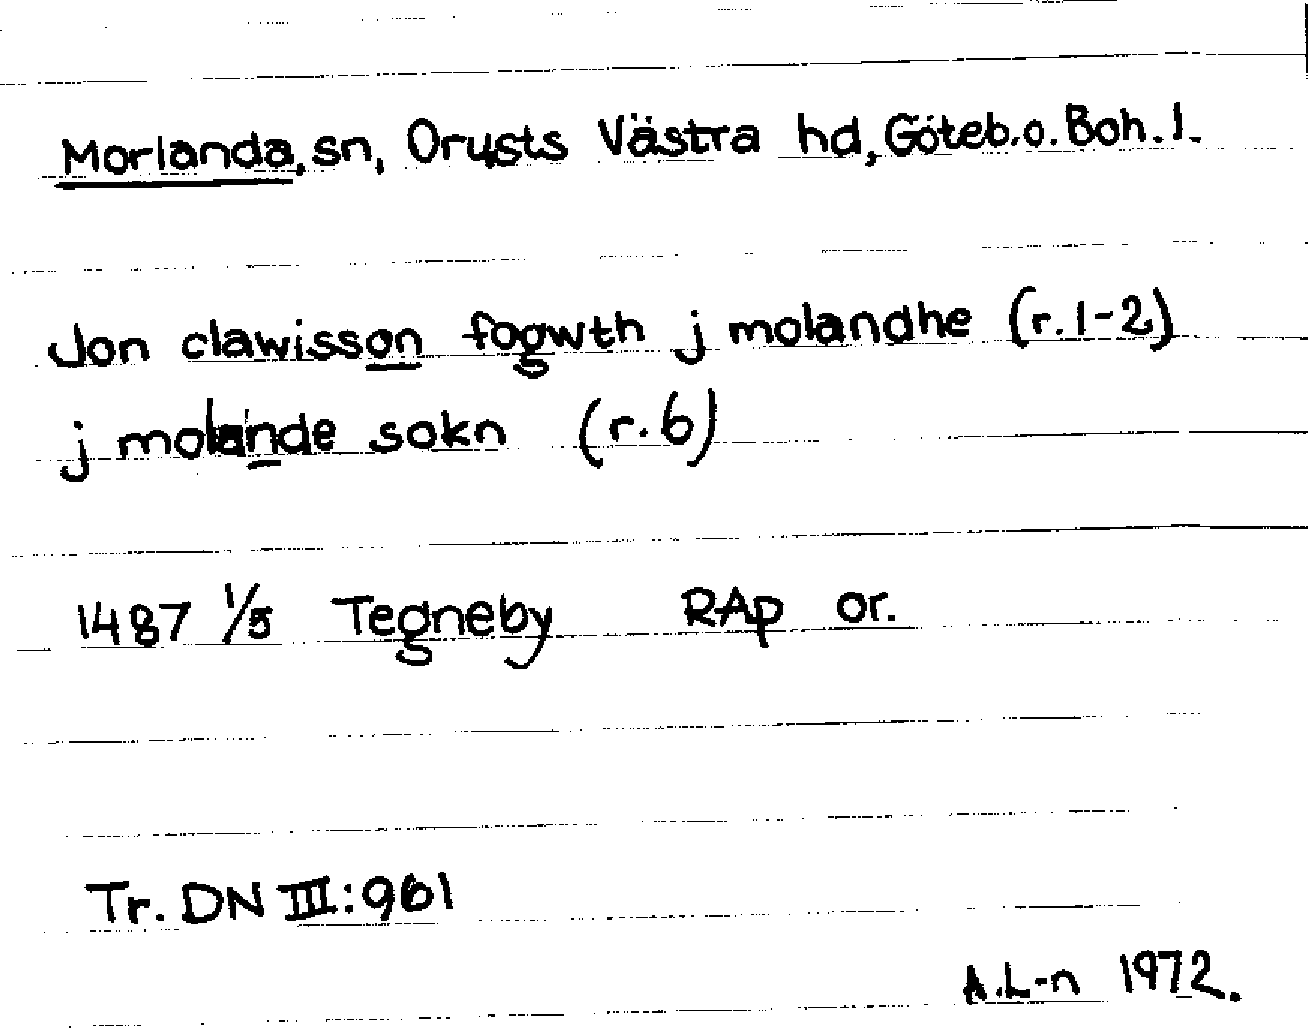 Morlanda, sn, Orusts Västra hd, Göteb.o. Boh. l.
Jon clawisson fogwth j molandhe (r. 1-2)
j molande sokn (r. 6)
1487 1/5 Tegneby RAp or.
Tr. DN III:961
A.L-n 1972.